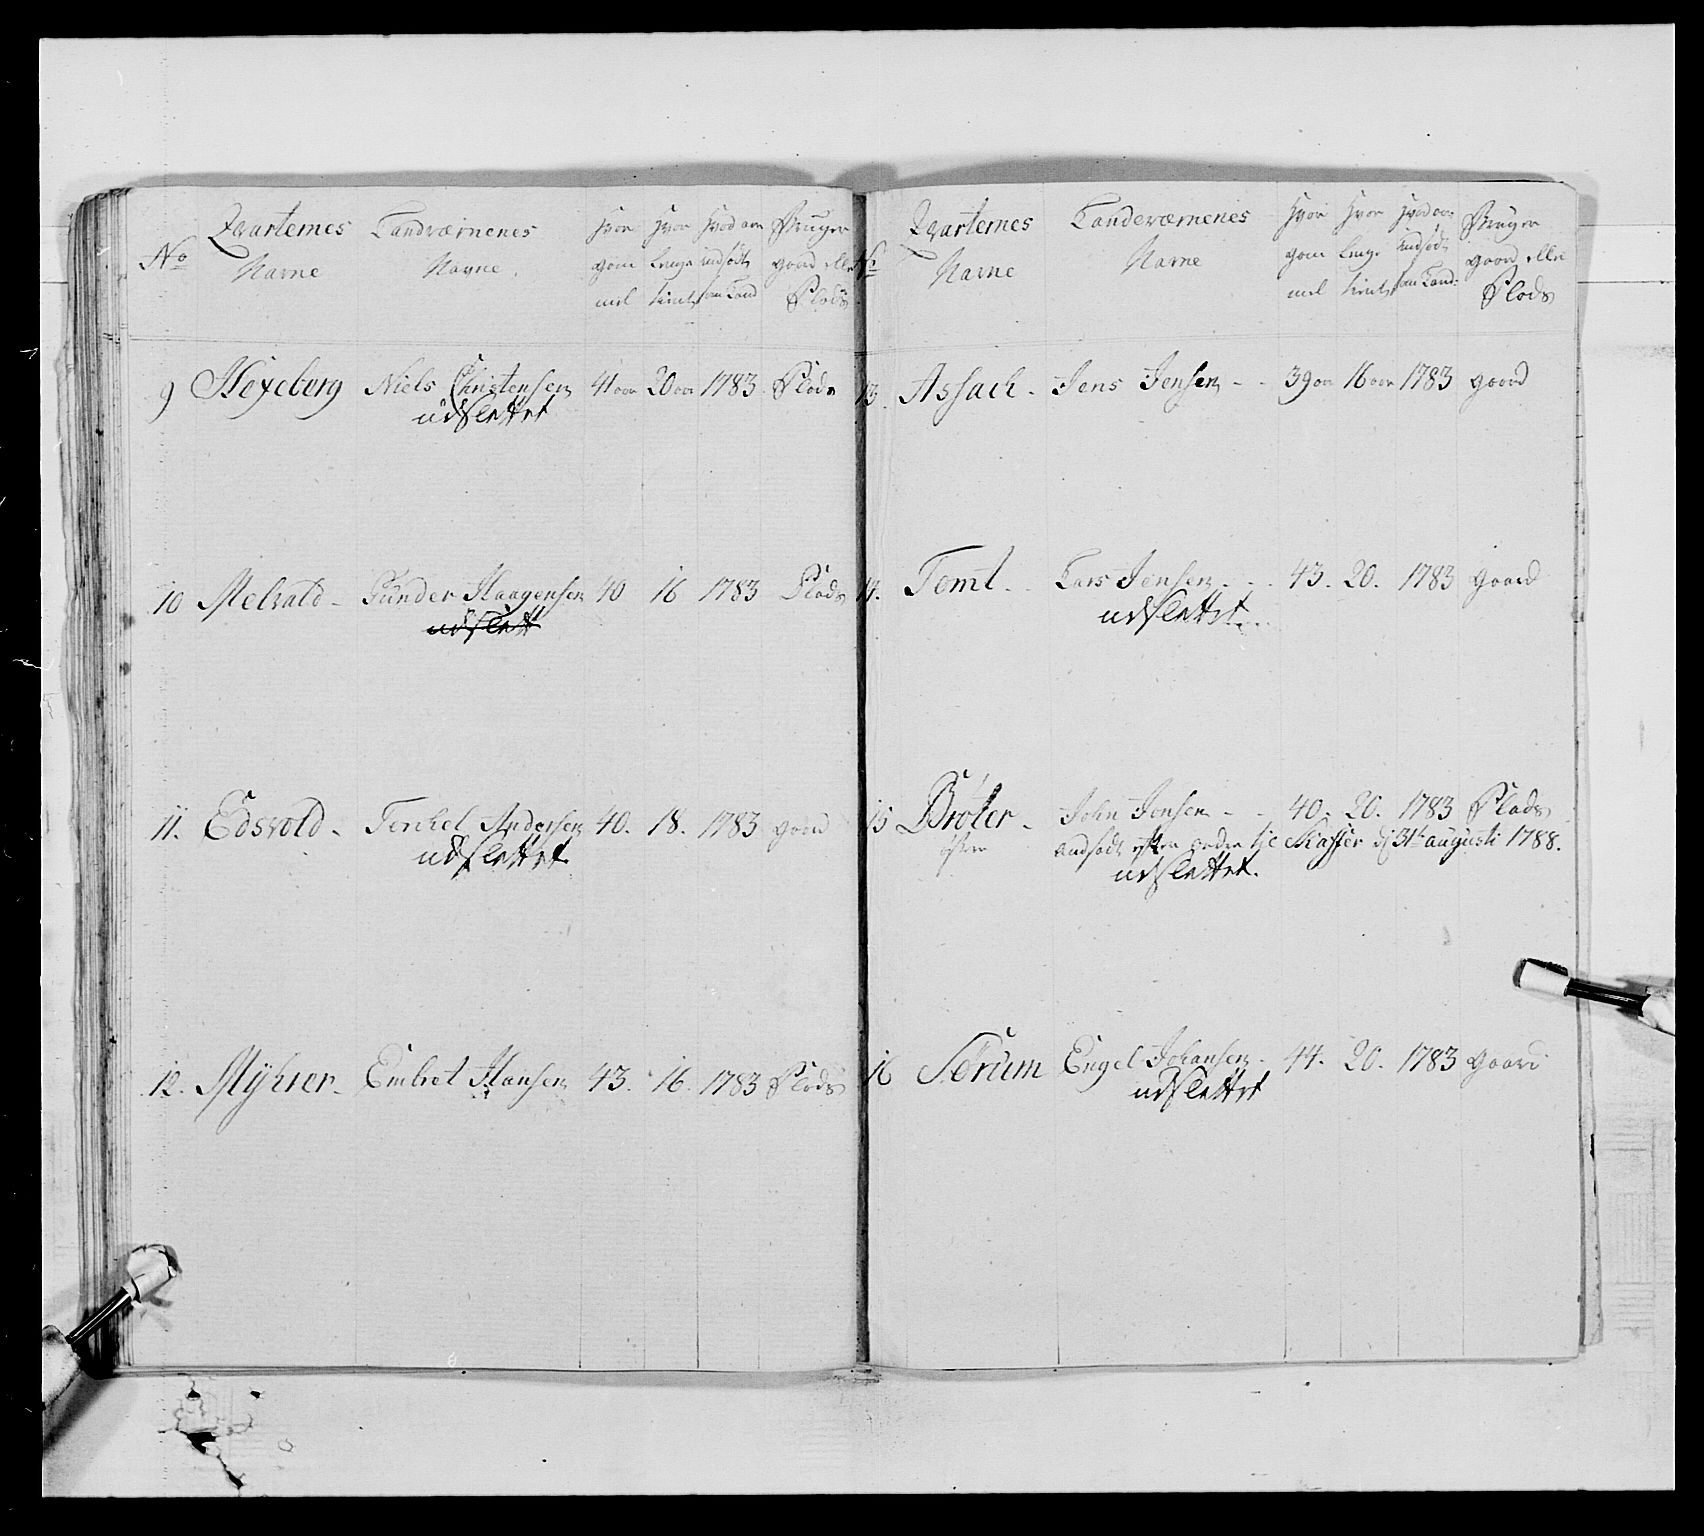 No
Qvarternes Navne
Landværnenes Navne
Hvor gammel
Hvor lenge tient
Hvad aar indsadt am Land
Bruger gaard eller Plads
9 Hexeberg Niels Christensen 41 aar 20 aar 1783 Plads
udslettet
10 Melvald - Gunder Haagensen 40 16 1783 Plads
udslett
11. Edsvold - Torchel Andersen 40. 18. 1783 gaard
udslettet
12. Myhrer - Embret Hansen 43. 16. 1783 Plads
No
Qvarternes Navne
Landeværnenes Navne
Hvor gammel
Hvor lenge tient
Hvad aar indsadt am Land:
Bruger gaard eller Plads
13. Assach - Jens Jensen - - 39 aar 16 aar 1783 gaard
14. Tomt - - Lars Jensen - - 43. 20. 1783 gaard
udslettet
15 Bröter - John Jonsen - - 40. 20. 1783 Plads
östre andsadt efter ordre Skafser d 31te augusti 1788.
udslettet.
16 Sörum Engel Johansen - 44. 20. 1783 gaard
udslettet